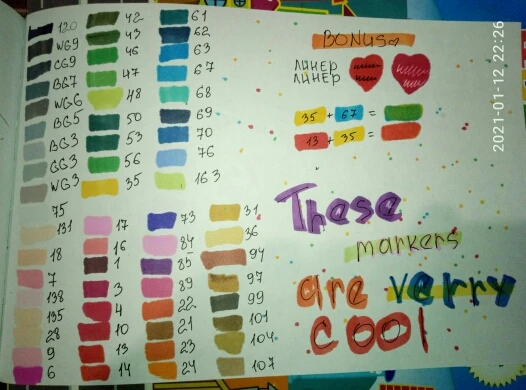 120
WG9
CG9
BG7
WG6
BG5
BG3
GG3
WG3
42
43
46
47
48
50
53
56
35
61
62
63
67
68
69
70
76
163
75
131
18
7
138
135
28
9
6
17
16
1
3
4
10
13
14
73
84
85
89
22
21
23
24
31
36
94
97
99
101
104
107
BONUS
ЛИНЕР
ЛИНЕР
35 + 67 =
13 + 35 =
These
markers
are verry
cool
2021-01-12 22:26